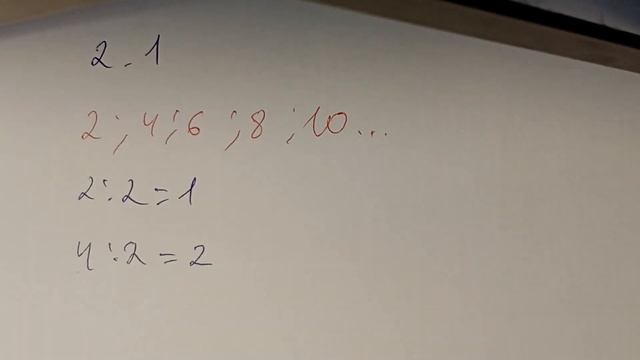 2.1
2;4;6;8;10...
2:2=1
4:2=2